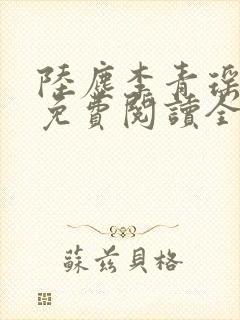 陸塵李青瑤
免費閱讀全
蘇茲貝格